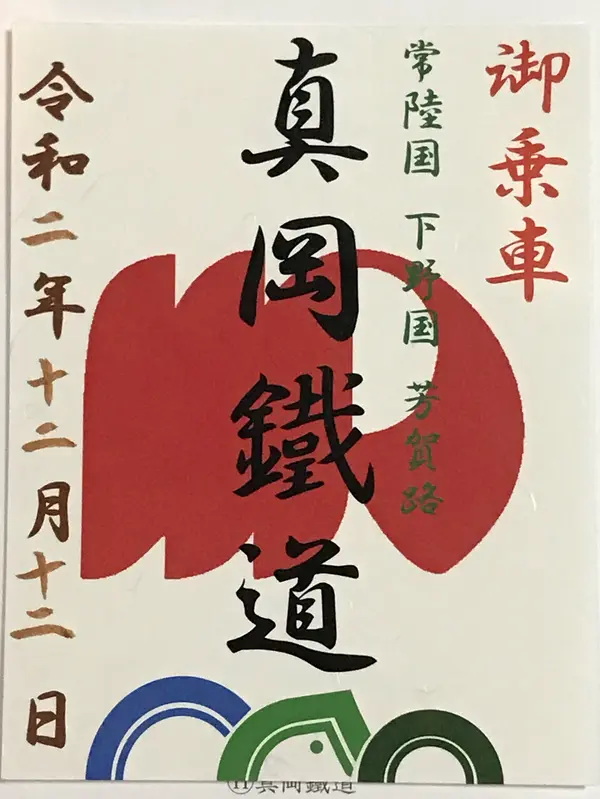 御乗車
常陸国 下野国 芳賀路
真岡鐵道
令和二年十二月十二日
⑪真岡鐵道